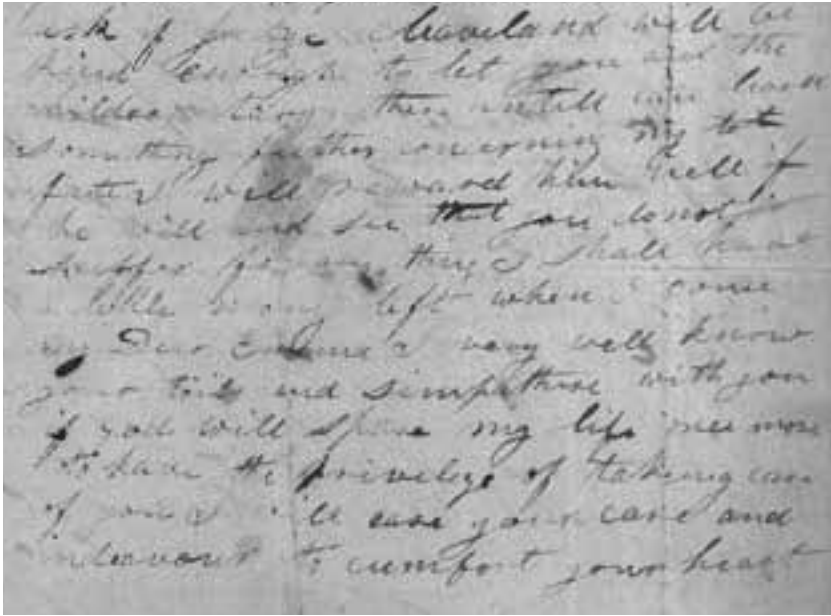 ask if Judge Cleaveland will be
kind enough to let you and the
children tarry there untill you learn
something further concerning my lot
fate I will reward him well if
he will and see that you do not
suffer for any thing I shall have
a little mony left when I come
my Dear Emma I very well know
your toils and simpathise with you
if god will spare my life once more
to have the privelege of takeing care
of you I will ease your care and
indeavour to cumfort your heart